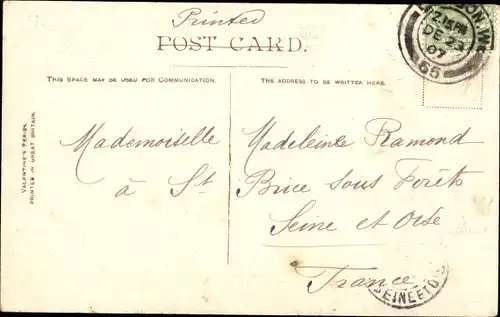 Printed
POST CARD.
LONDON. W.
2.15 PM
DE 23
07
65
THIS SPACE MAY BE USED FOR COMMUNICATION.
THE ADDRESS TO BE WRITTEN HERE.
VALENTINE'S SERIES.
PRINTED IN GREAT BRITAIN.
Mademoiselle Madeleine Ramond
à St Brice sous Forêts
Seine et Oise
France
SEINE ET O